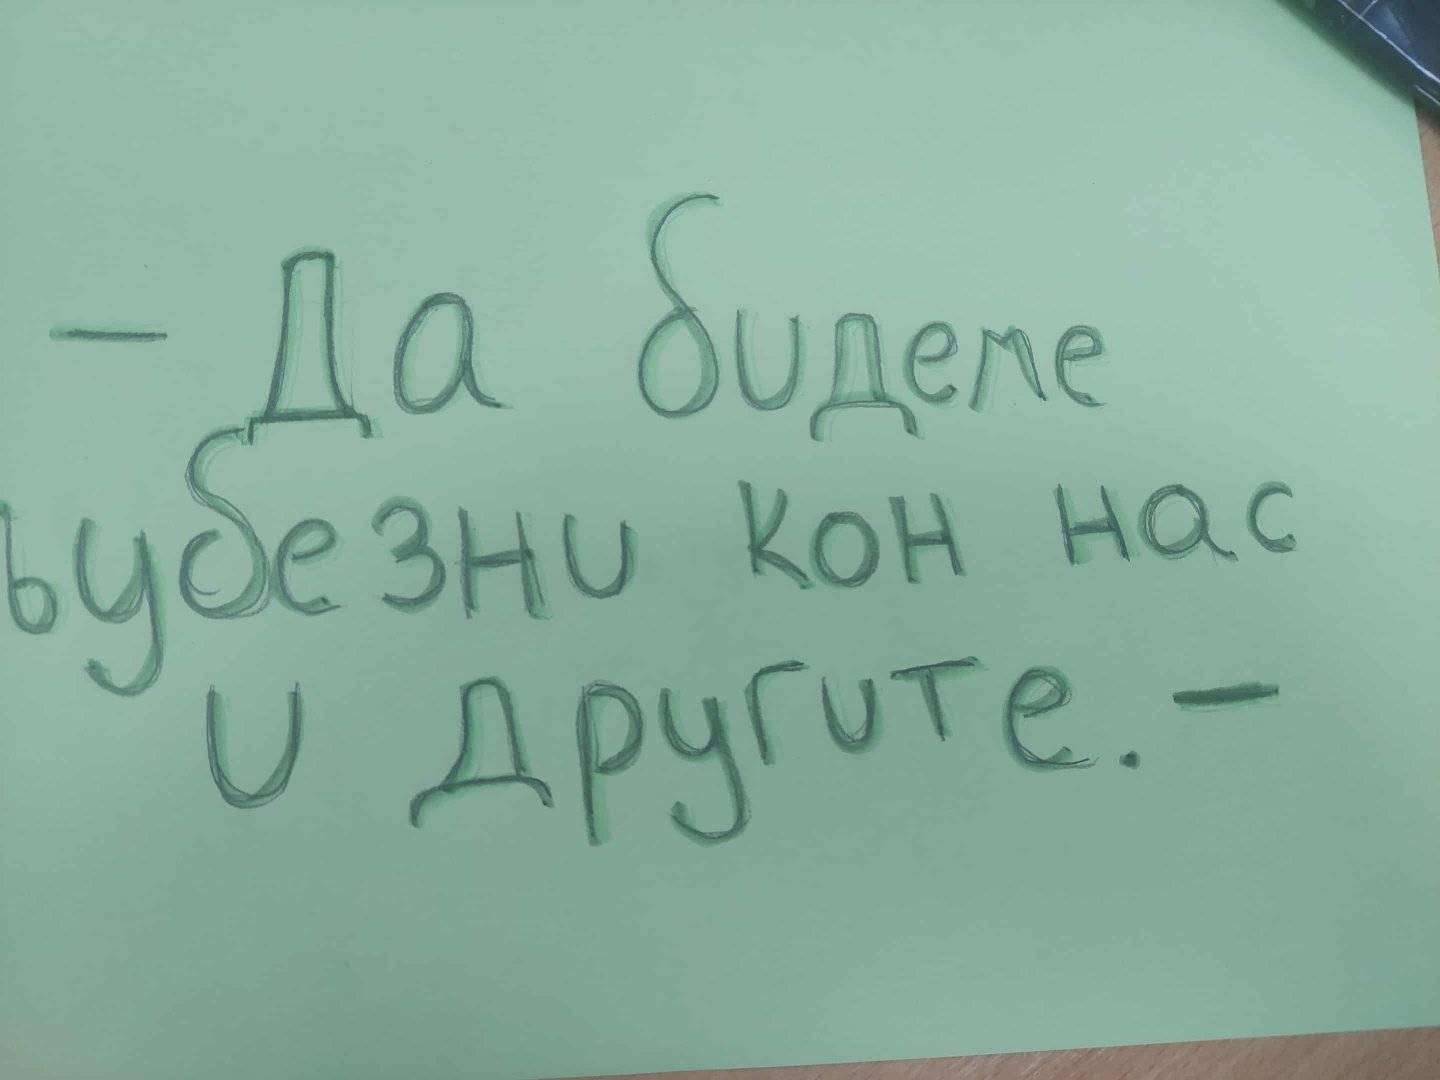 - Да бидеме
љубезни кон нас
и другите. -